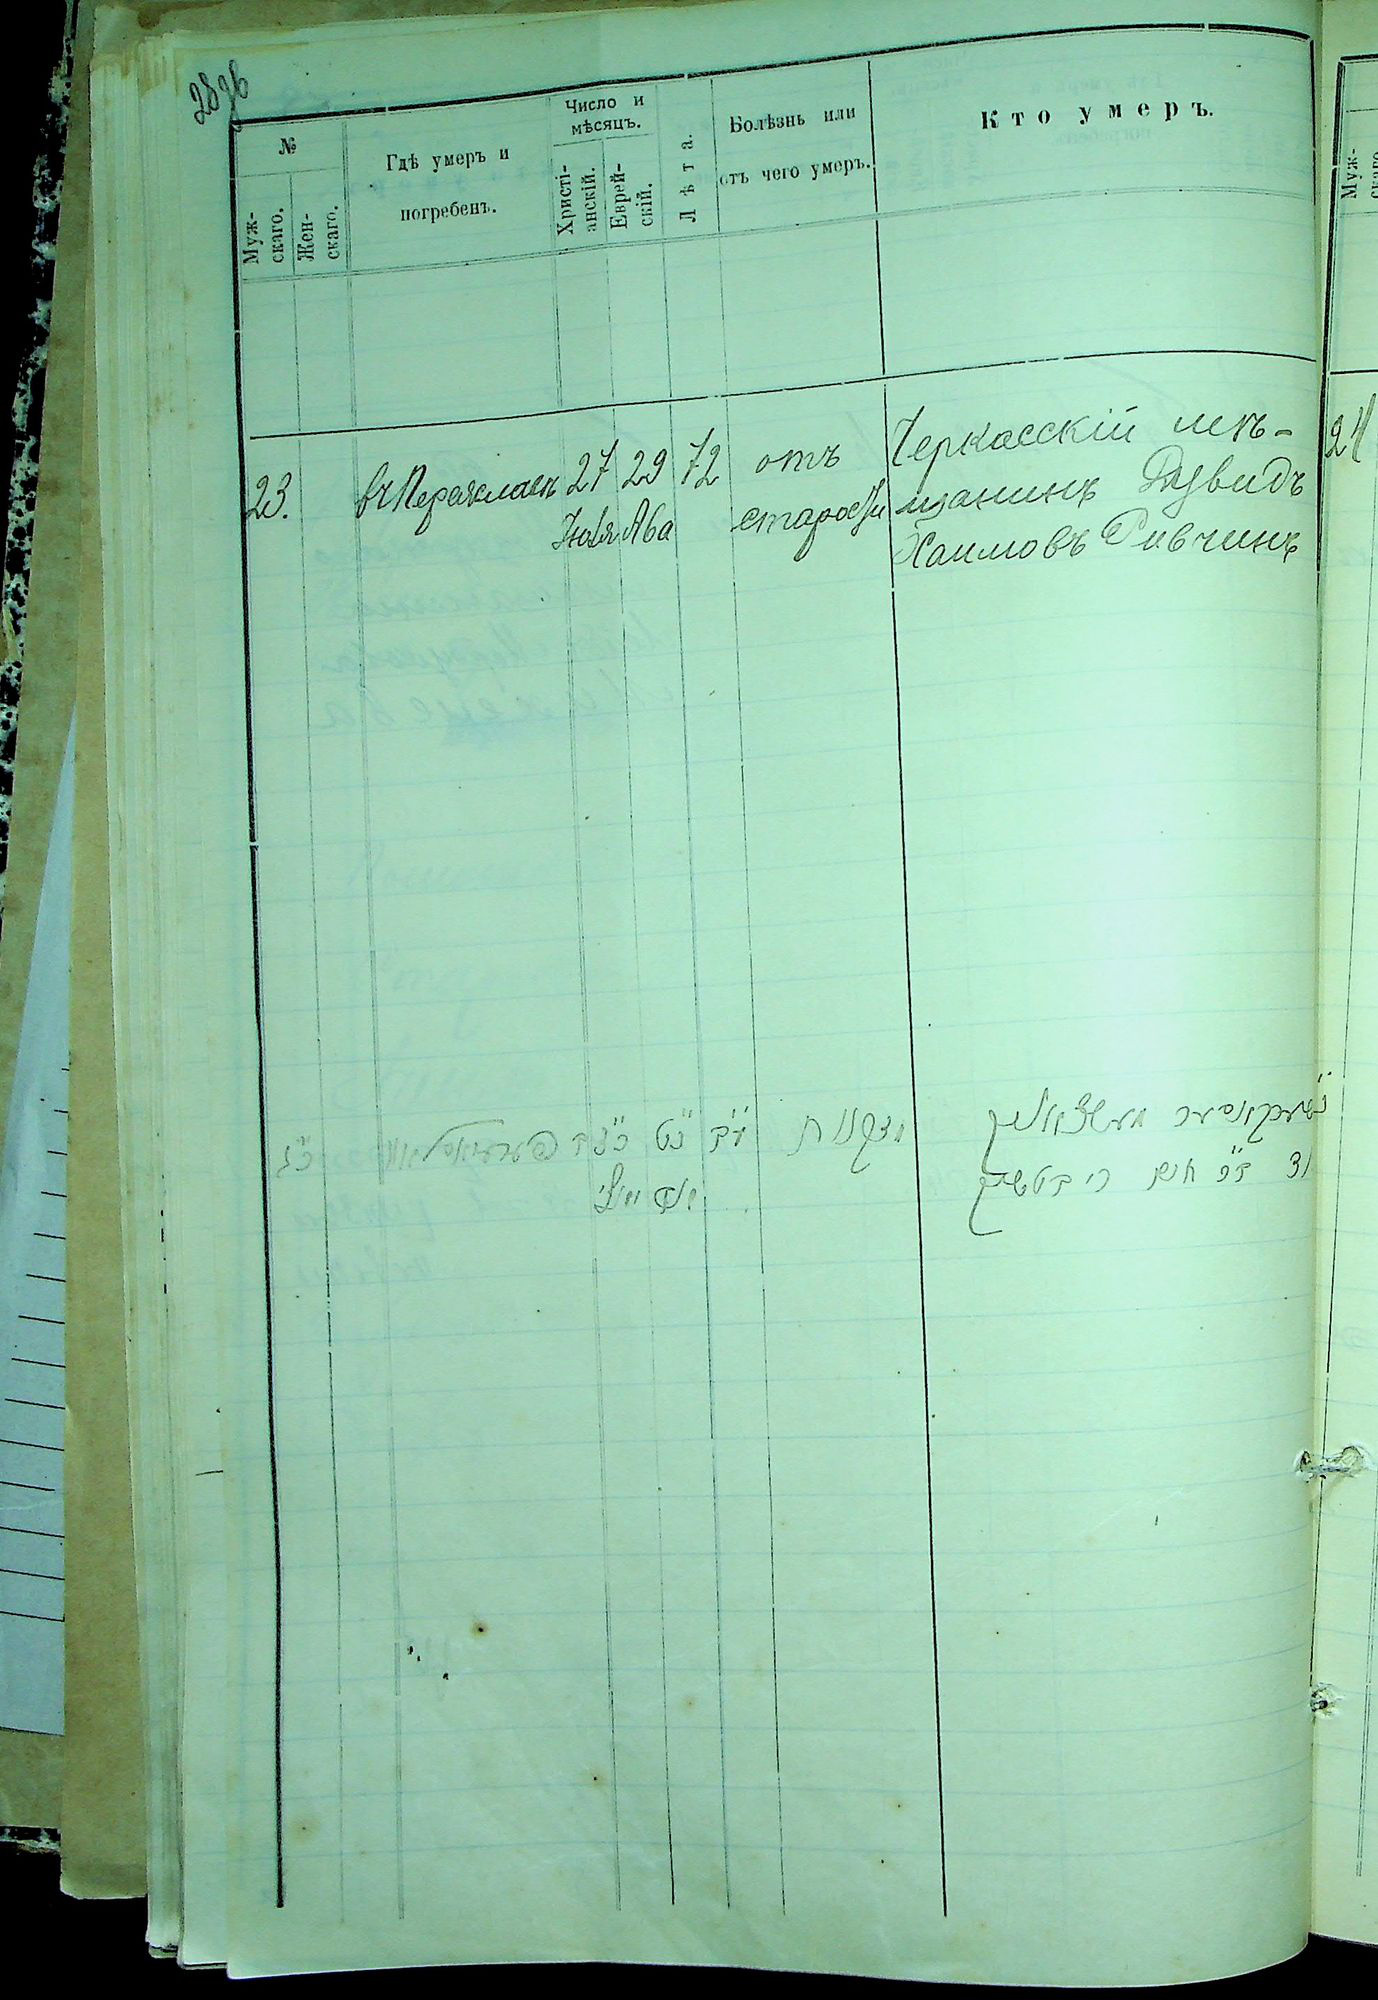 №
Муж-
скаго.
Жен-
скаго.
Гдѣ умеръ и
погребенъ.
Число и
мѣсяцъ.
Христі-
анскій.
Еврей-
скій.
Лѣта.
Болѣзнь или
отъ чего умеръ.
Кто умеръ.
23.
въ Переяславѣ
27
Іюля
29
Ава
72
отъ
старости
Черкасскій мѣ-
щанинъ Дувидъ
Хаимовъ Ривчинъ
כ״ג
כ״ז
יולי
כ״ט
אב
ע״ב
מזקנות
Муж-
скаго.
24